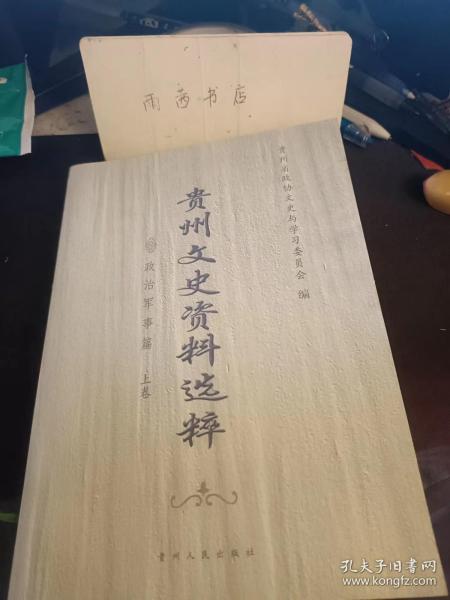 雨茜书店
贵州省政协文史与学习委员会 编
贵州文史资料选粹
政治军事篇 上卷
贵州人民出版社
孔夫子旧书网
www.kongfz.com